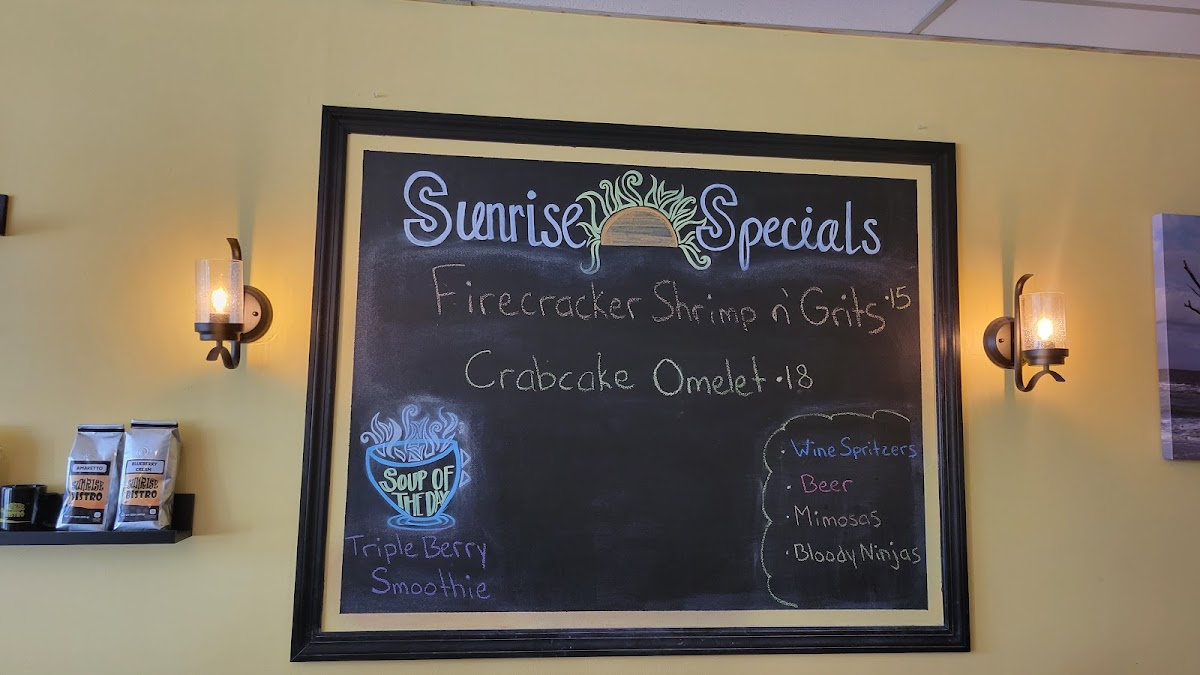 Sunrise Specials
Firecracker Shrimp n' Grits ·15
Crabcake Omelet ·18
SOUP OF
THE DAY
Triple Berry
Smoothie
· Wine Spritzers
· Beer
· Mimosas
· Bloody Ninjas
AMARETTO
SUNRISE
BISTRO
BLUEBERRY
CREAM
SUNRISE
BISTRO